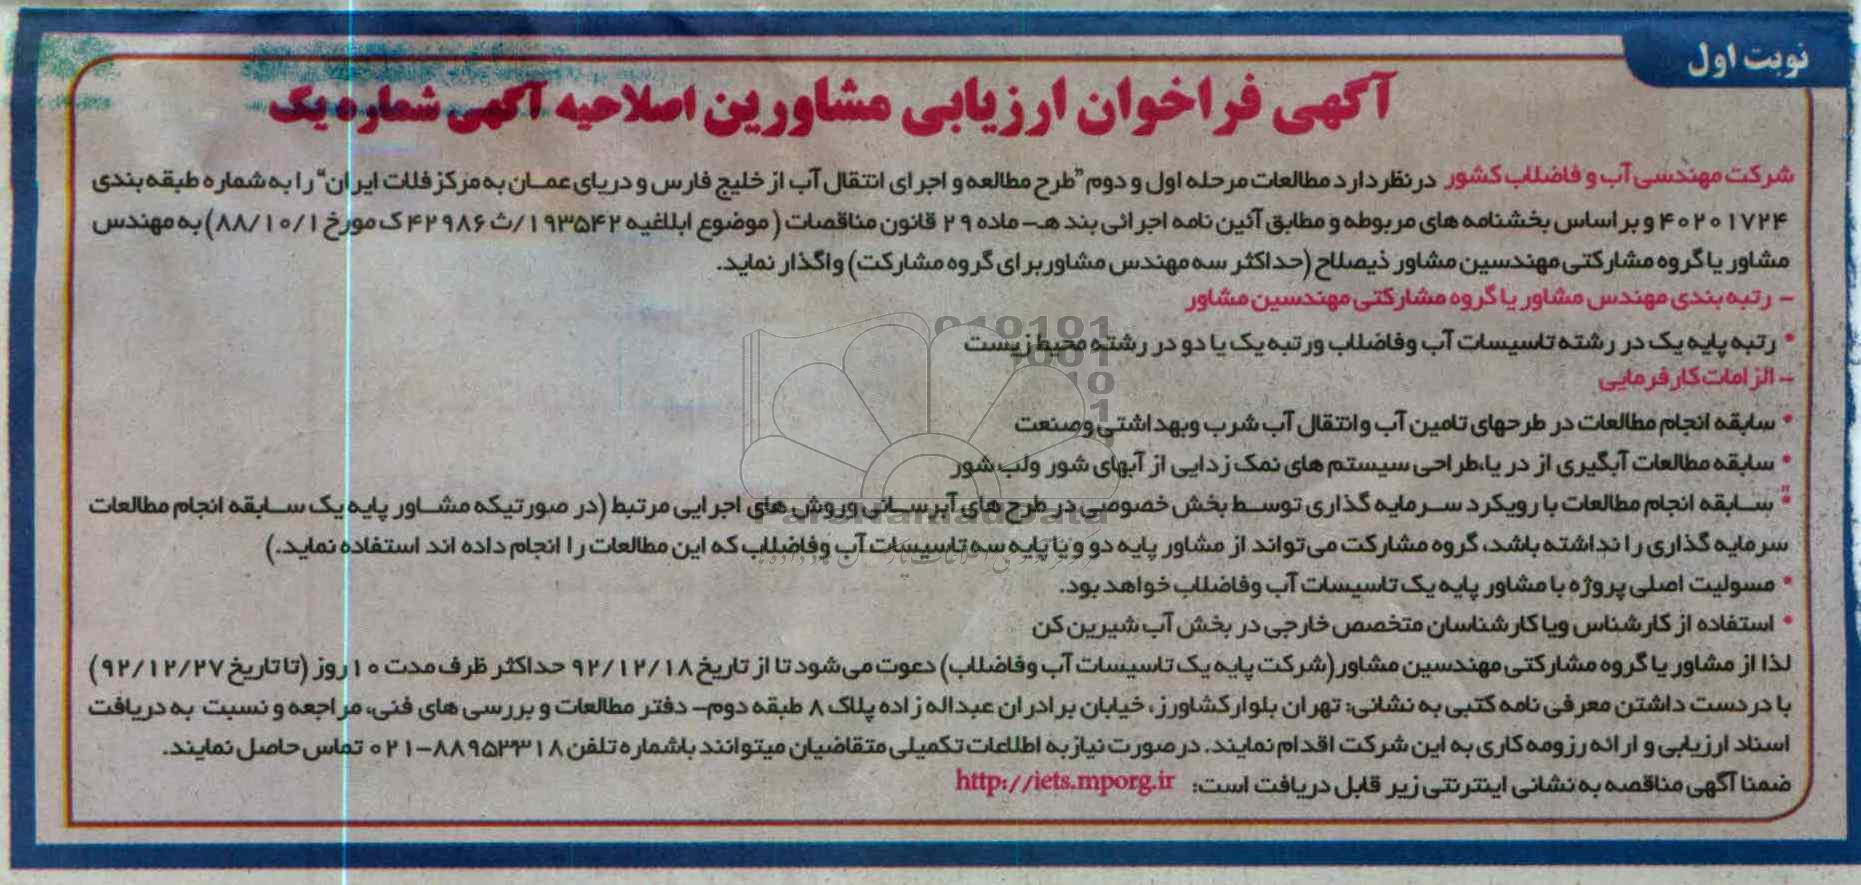 نوبت اول
آگهی فراخوان ارزیابی مشاورین اصلاحیه آگهی شماره یک
شرکت مهندسی آب و فاضلاب کشور در نظر دارد مطالعات مرحله اول و دوم "طرح مطالعه و اجرای انتقال آب از خلیج فارس و دریای عمان به مرکز فلات ایران" را به شماره طبقه بندی
۴۰۲۰۱۷۲۴ و بر اساس بخشنامه های مربوطه و مطابق آئین نامه اجرائی بند هـ- ماده ۲۹ قانون مناقصات ( موضوع ابلاغیه ۱۹۳۵۴۲/ث ۴۲۹۸۶ ک مورخ ۸۸/۱۰/۱) به مهندس
مشاور یا گروه مشارکتی مهندسین مشاور ذیصلاح (حداکثر سه مهندس مشاور برای گروه مشارکت) واگذار نماید.
- رتبه بندی مهندس مشاور یا گروه مشارکتی مهندسین مشاور
• رتبه پایه یک در رشته تاسیسات آب وفاضلاب ورتبه یک یا دو در رشته محیط زیست
- الزامات کارفرمایی
• سابقه انجام مطالعات در طرحهای تامین آب وانتقال آب شرب وبهداشتی وصنعت
• سابقه مطالعات آبگیری از دریا،طراحی سیستم های نمک زدایی از آبهای شور ولب شور
• سابقه انجام مطالعات با رویکرد سرمایه گذاری توسط بخش خصوصی در طرح های آبرسانی وروش های اجرایی مرتبط (در صورتیکه مشاور پایه یک سابقه انجام مطالعات
سرمایه گذاری را نداشته باشد، گروه مشارکت می‌تواند از مشاور پایه دو و یا پایه سه تاسیسات آب وفاضلاب که این مطالعات را انجام داده اند استفاده نماید.)
• مسولیت اصلی پروژه با مشاور پایه یک تاسیسات آب وفاضلاب خواهد بود.
• استفاده از کارشناس ویا کارشناسان متخصص خارجی در بخش آب شیرین کن
لذا از مشاور یا گروه مشارکتی مهندسین مشاور(شرکت پایه یک تاسیسات آب وفاضلاب) دعوت می‌شود تا از تاریخ ۹۲/۱۲/۱۸ حداکثر ظرف مدت ۱۰ روز (تا تاریخ ۹۲/۱۲/۲۷)
با در دست داشتن معرفی نامه کتبی به نشانی: تهران بلوار کشاورز، خیابان برادران عبداله زاده پلاک ۸ طبقه دوم- دفتر مطالعات و بررسی های فنی، مراجعه و نسبت به دریافت
اسناد ارزیابی و ارائه رزومه کاری به این شرکت اقدام نمایند. در صورت نیاز به اطلاعات تکمیلی متقاضیان میتوانند باشماره تلفن ۸۸۹۵۳۳۱۸-۰۲۱ تماس حاصل نمایند.
ضمنا آگهی مناقصه به نشانی اینترنتی زیر قابل دریافت است: http://iets.mporg.ir